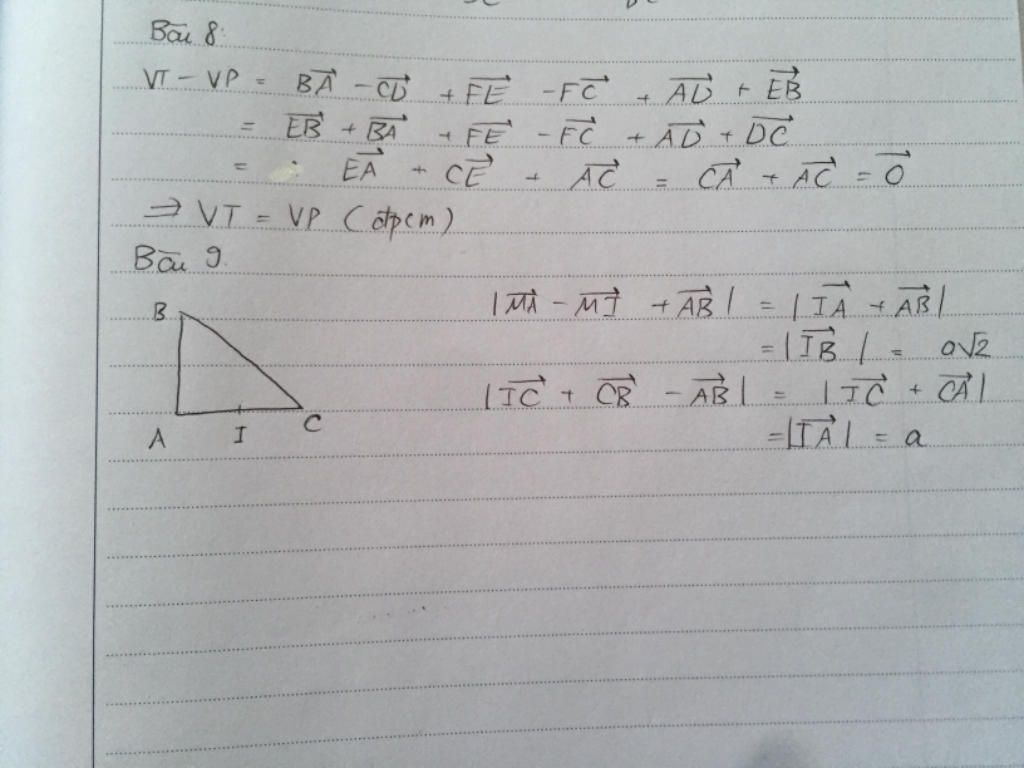 Bài 8:
VT - VP = \overrightarrow{BA} - \overrightarrow{CD} + \overrightarrow{FE} - \overrightarrow{FC} + \overrightarrow{AD} + \overrightarrow{EB}
= \overrightarrow{EB} + \overrightarrow{BA} + \overrightarrow{FE} - \overrightarrow{FC} + \overrightarrow{AD} + \overrightarrow{DC}
= \overrightarrow{EA} + \overrightarrow{CE} + \overrightarrow{AC} = \overrightarrow{CA} + \overrightarrow{AC} = \overrightarrow{0}
⇒ VT = VP (đpcm)
Bài 9.
B
A I C
|\overrightarrow{MA} - \overrightarrow{MI} + \overrightarrow{AB}| = |\overrightarrow{IA} + \overrightarrow{AB}|
= |\overrightarrow{IB}| = a√2
|\overrightarrow{IC} + \overrightarrow{CB} - \overrightarrow{AB}| = |\overrightarrow{IC} + \overrightarrow{CA}|
= |\overrightarrow{IA}| = a